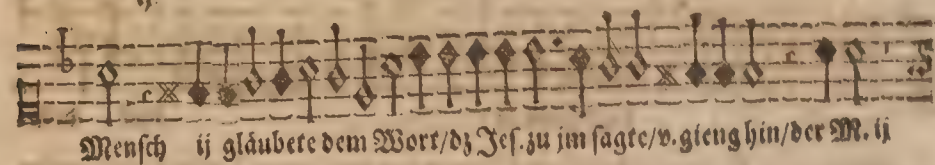 ij.
Mensch ij gläubete dem Wort/dz Jes. zu jm sagte/v. gieng hin/der M. ij